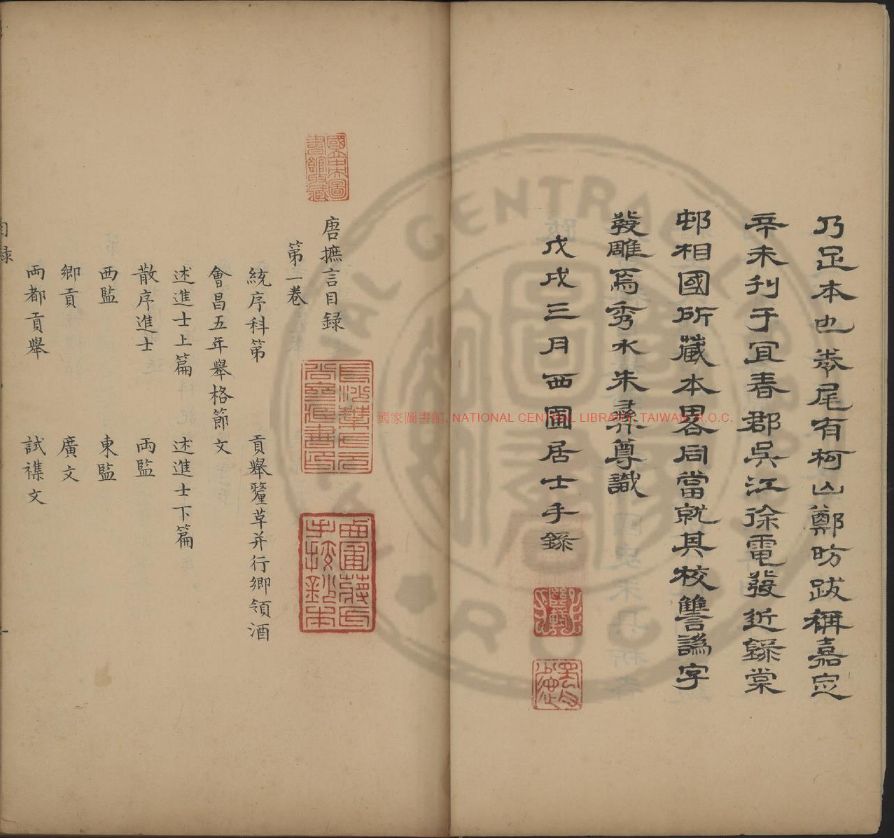 乃足本也卷尾有柯山鄭昉跋稱嘉定
辛未刊于宜春郡吳江徐電發近錄棠
邨相國所藏本畧同當就其校讐譌字
發雕焉秀水朱彝尊識
戊戌三月西圃居士手錄
唐摭言目录
第一卷
統序科第 貢舉釐草并行鄉領酒
會昌五年舉格節文
述進士上篇 述進士下篇
散序進士 両監
西監 東監
鄉貢 廣文
両都貢舉 試襍文
目录
國家圖書館, NATIONAL CENTRAL LIBRARY, TAIWAN, R.O.C.
NATIONAL CENTRAL LIBRARY
R.O.C.